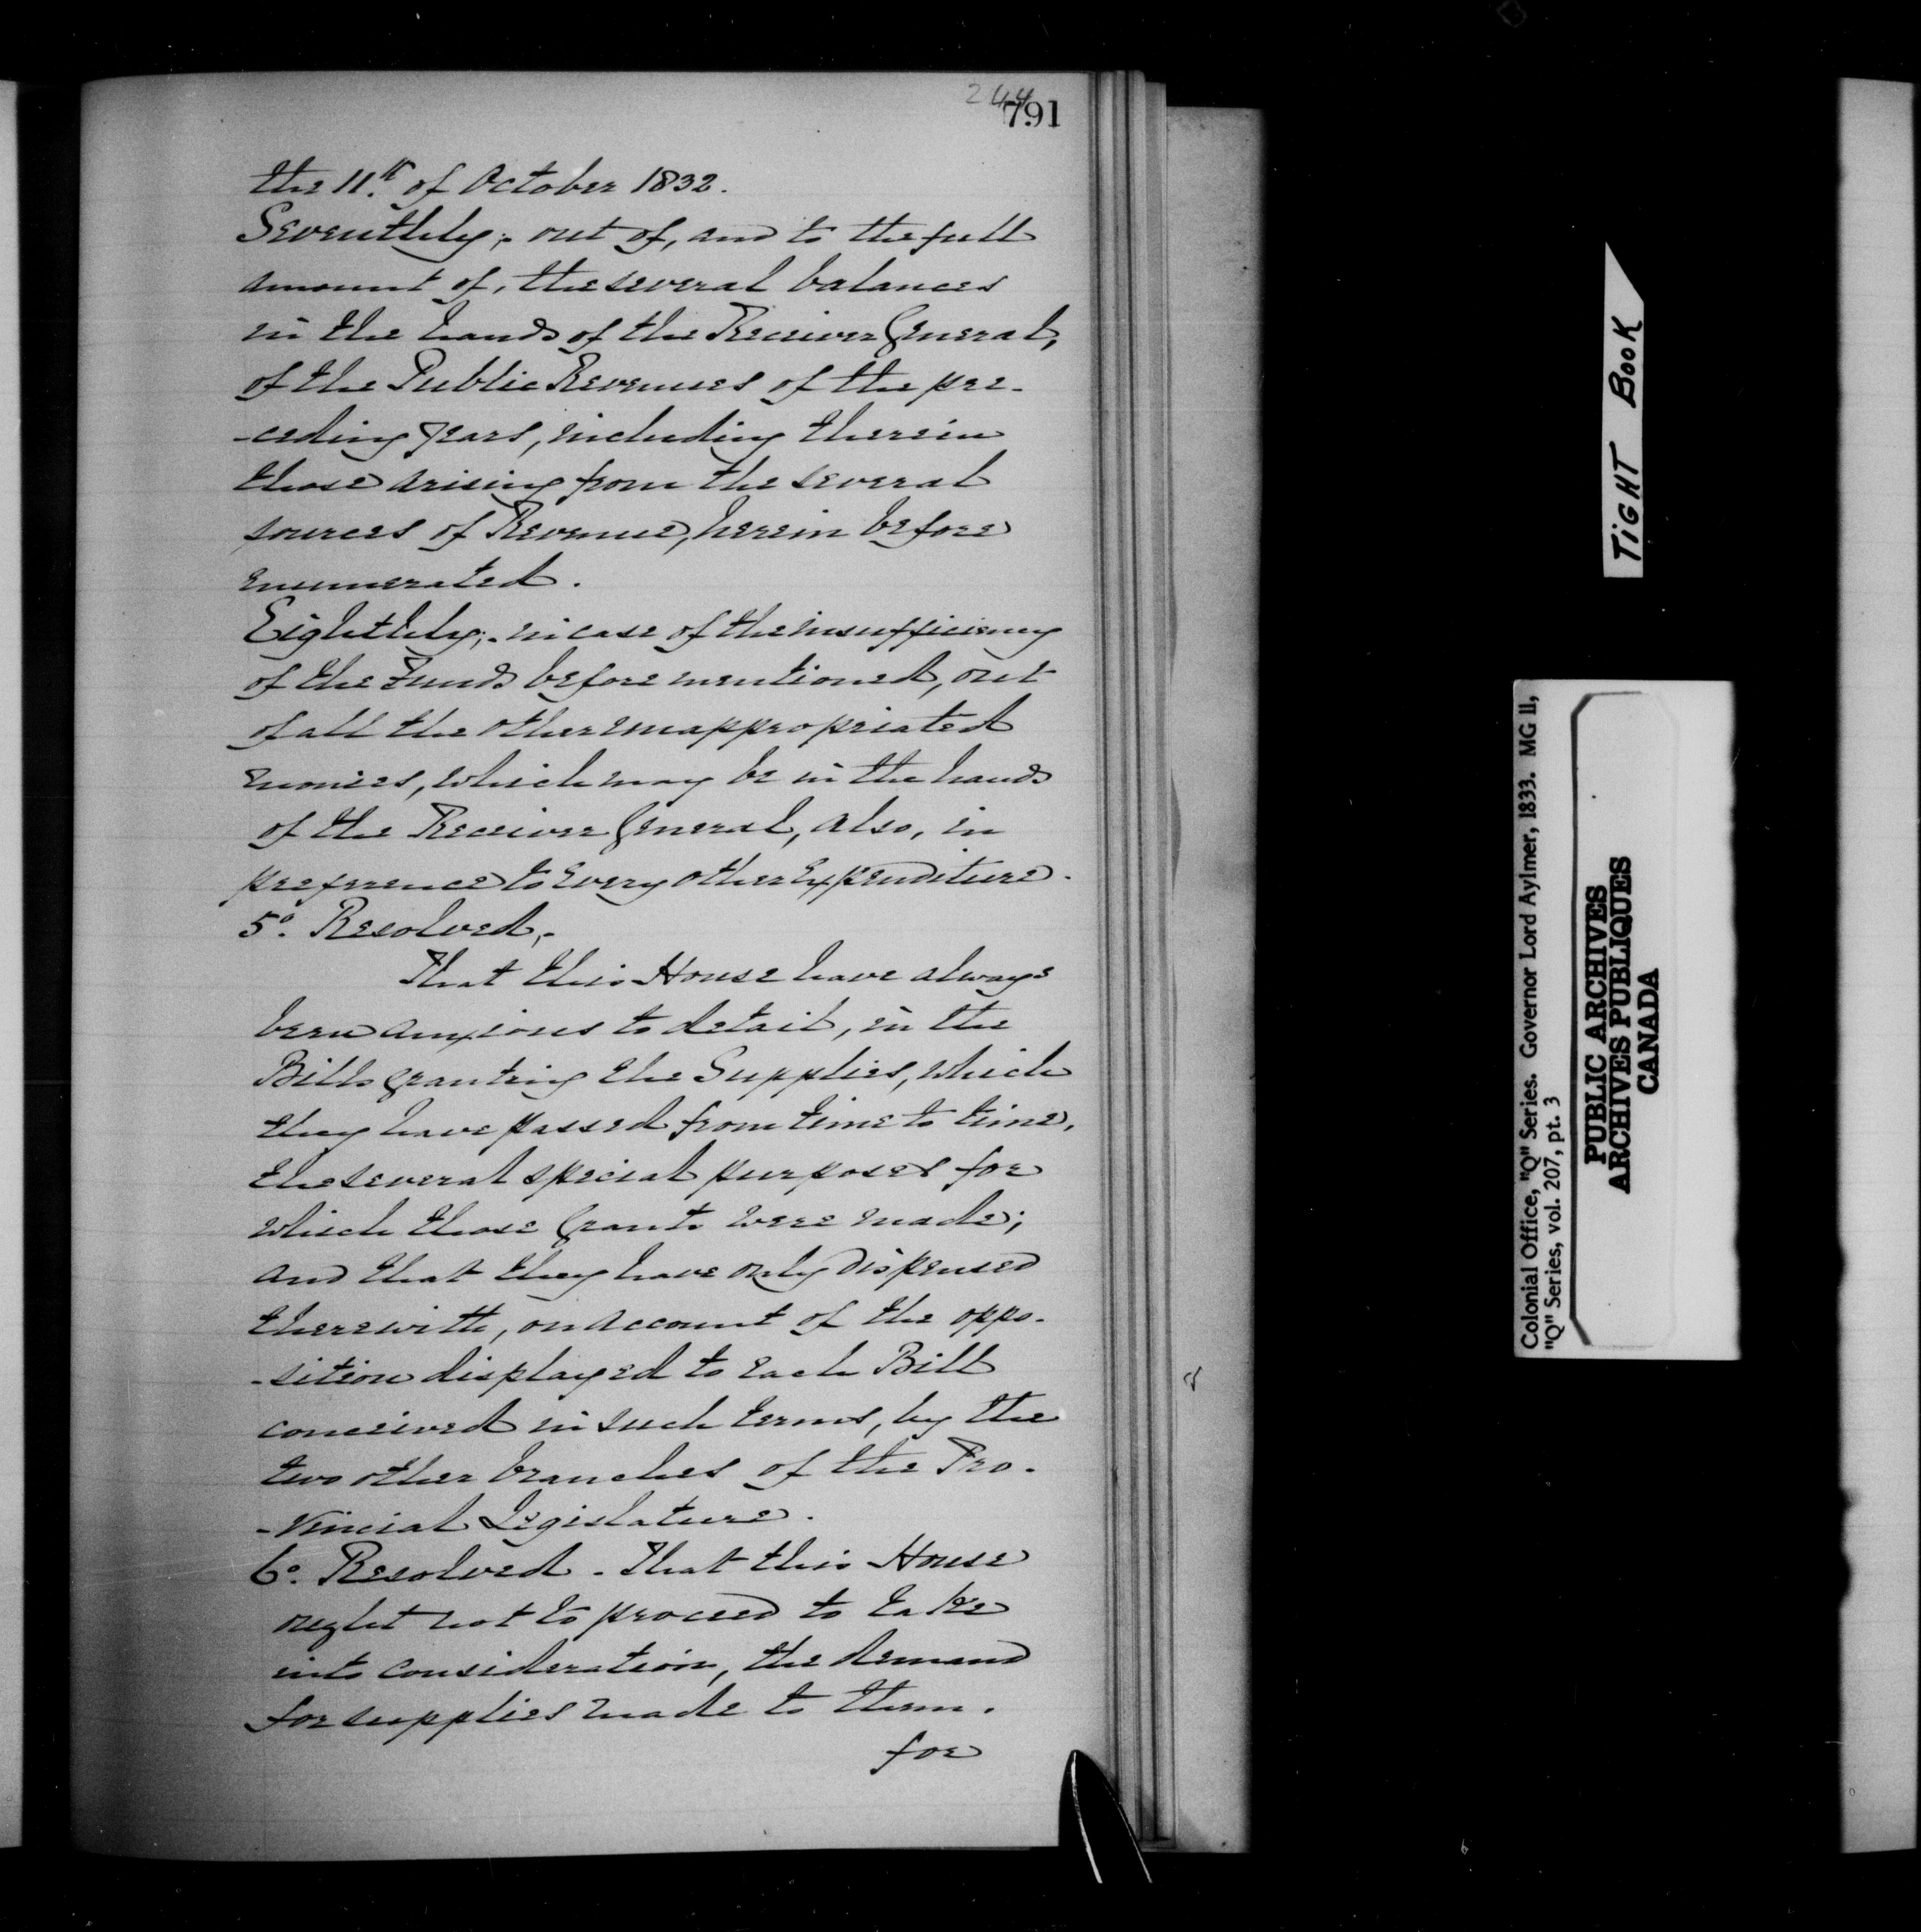 244
791
the 11th. of October 1832.
Seventhly; - out of, and to the full
amount of, the several balances
in the hands of the Receiver General,
of the Public Revenues of the pre-
-ceding years, including therein
those arising from the several
sources of Revenue, herein before
enumerated.
Eighthly; - in case of the insufficiency
of the Funds before mentioned, out
of all the other unappropriated
monies, which may be in the hands
of the Receiver General, also, in
preference to every other Expenditure.
5o. Resolved, -
That this House have always
been anxious to detail, in the
Bills granting the Supplies, which
they have passed from time to time,
the several special purposes for
which those Grants were made;
and that they have only dispensed
therewith, on account of the oppo-
-sition displayed to each Bill
conceived in such terms, by the
two other branches of the Pro-
-vincial Legislature.
6o. Resolved - That this House
ought not to proceed to take
into consideration, the demand
for supplies made to them.
for
TIGHT BOOK
Colonial Office, "Q" Series. Governor Lord Aylmer, 1833. MG 11,
"Q" Series, vol. 207, pt. 3
PUBLIC ARCHIVES
ARCHIVES PUBLIQUES
CANADA